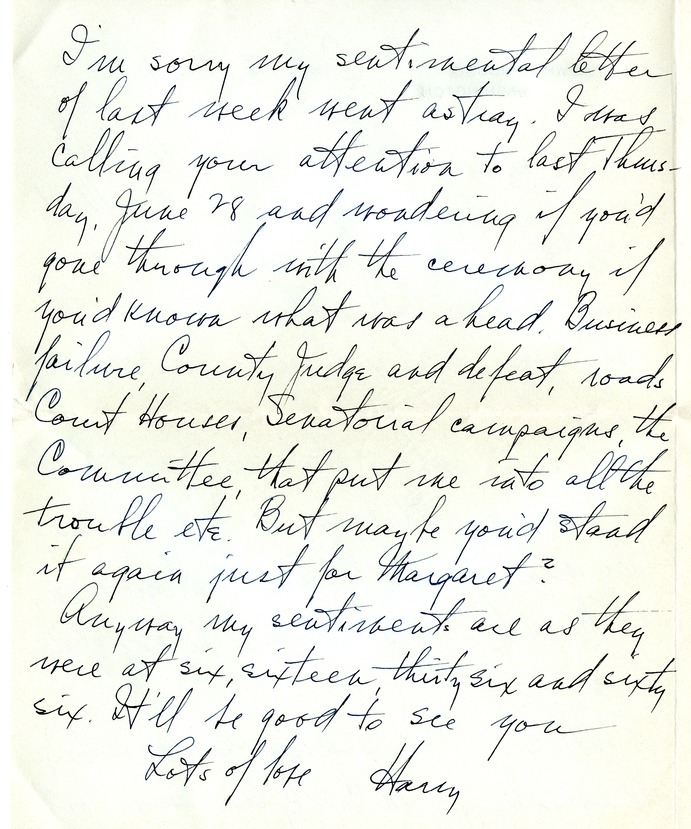 I'm sorry my sentimental letter
of last week went astray. I was
calling your attention to last Thurs-
day, June 28 and wondering if you'd
gone through with the ceremony if
you'd known what was ahead. Business
failure, County Judge and defeat, roads
Court Houses, Senatorial campaigns, the
Committee, that put me into all the
trouble etc. But maybe you'd stand
it again just for Margaret?
Anyway my sentiments are as they
were at six, sixteen, thirty six and sixty
six. It'll be good to see you
Lots of love Harry